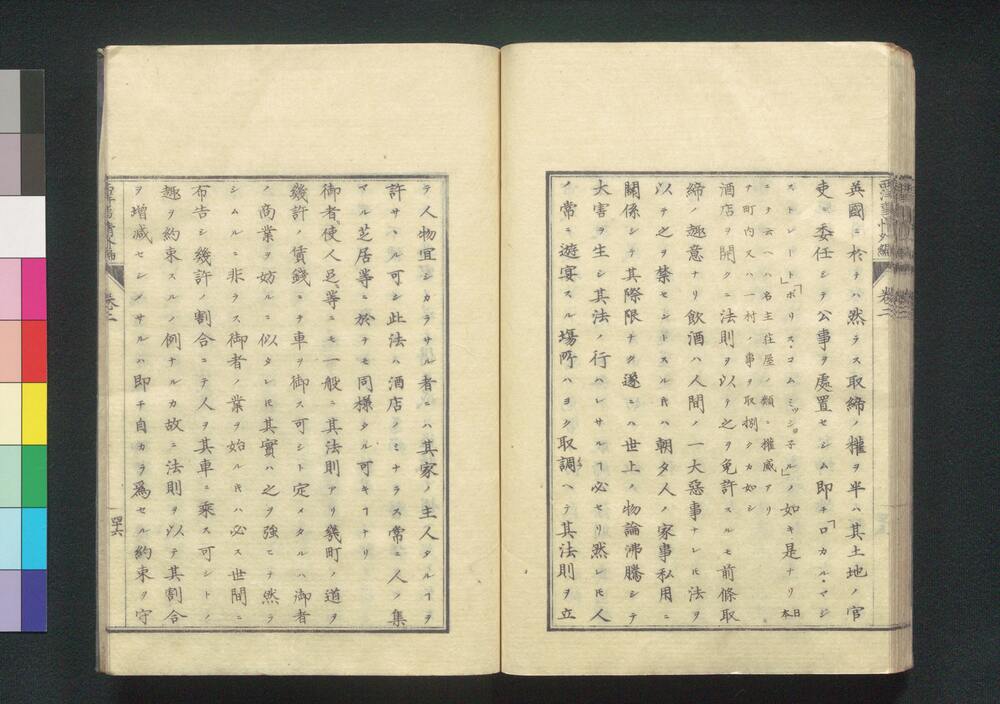 西洋事情外編
卷二
英國ニ於テハ然ラス取締ノ權ヲ半ハ其土地ノ官
吏ニ委任シテ公事ヲ處置セシム即チ「ロカル・マジ
ストレート」「ポリス・コムミッショ子ル」ノ如キ是ナリ日本
ニテ云ヘハ名主荘屋ノ類ニ權威アリ
テ町内又ハ一村ノ事ヲ取捌クカ如シ
酒店ヲ開クニ法則ヲ以テ之ヲ免許スルモ前條取
締ノ趣意ナリ飲酒ハ人間ノ一大惡事ナレ𪜈法ヲ
以テ之ヲ禁セントスル𪜈ハ朝夕人ノ家事私用ニ
關係シテ其際限ナク遂ニハ世上ノ物論沸騰シテ
大害ヲ生シ其法ノ行ハレサルヿ必セリ然レ𪜈人
ノ常ニ遊宴スル塲所ハヨク取調ヘテ其法則ヲ立
テ人物宜シカラサル者ニハ其家ノ主人タルヿヲ
許サヽル可シ此法ハ酒店ノミナラス常ニ人ノ集
マル芝居等ニ於テモ同様タル可キヿナリ
御者使人足等ニモ一般ニ其法則アリ幾町ノ道ヲ
幾許ノ賃錢ニテ車ヲ御ス可シト定メタルハ御者
ノ商業ヲ妨ルニ似タレ𪜈其實ハ之ヲ強ヒテ然ラ
シムルニ非ラス御者ノ業ヲ始ル𪜈ハ必ス世間ニ
布告シ幾許ノ割合ニテ人ヲ其車ニ乘ス可シトノ
趣ヲ約束スルノ例ナルカ故ニ法則ヲ以テ其割合
ヲ增減セシメサルハ即チ自カラ爲セル約束ヲ守
西洋事情外編
卷二
四十六